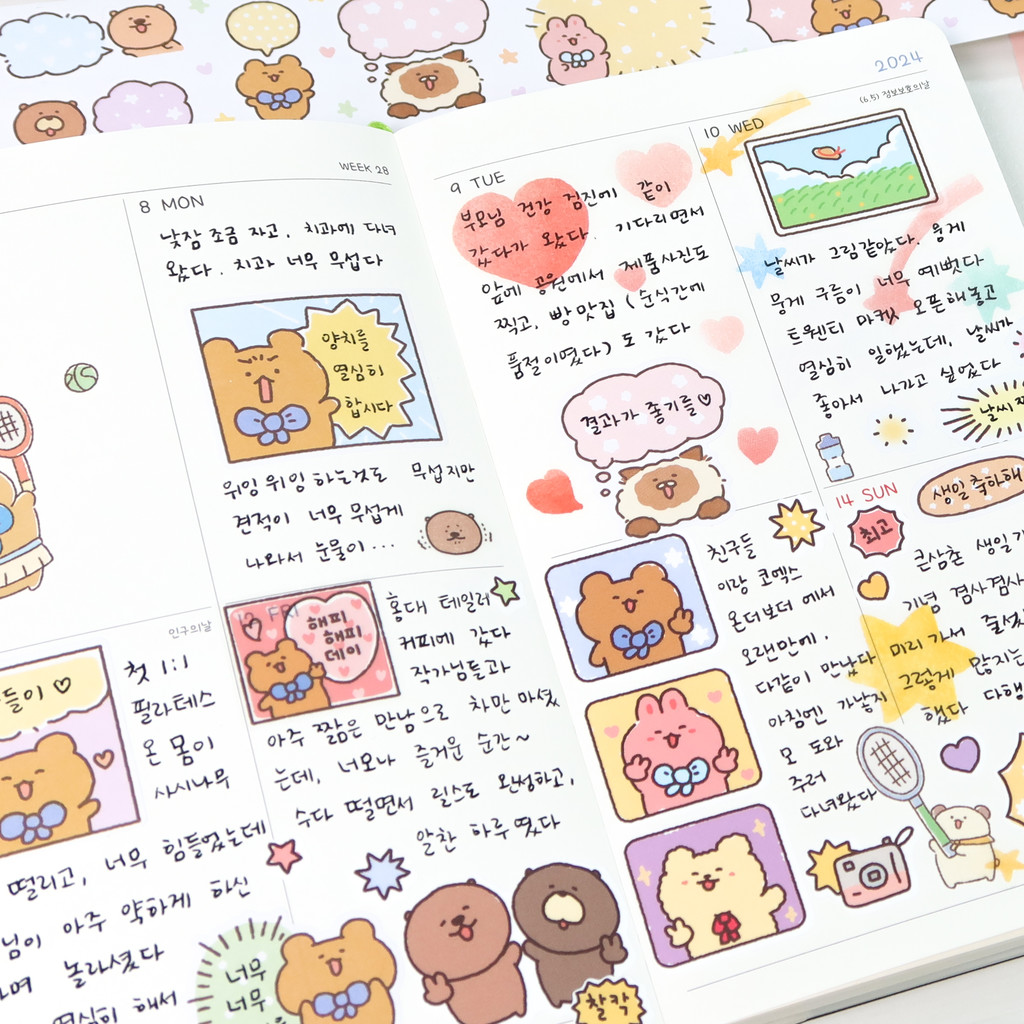 WEEK 28
8 MON
낮잠 조금 자고, 치과에 다녀
왔다. 치과 너무 무섭다
양치를
열심히
합시다
위잉 위잉 하는것도 무섭지만
견적이 너무 무섭게
나와서 눈물이...
인구의날
들이 ♡
첫 1:1
필라테스
온 몸이
사시나무
떨리고, 너무 힘들었는데
님이 아주 약하게 하신
며 놀라셨다
열심히 해서
해피
해피
데이
홍대 테일러
커피에 갔다
작가님들과
아주 짧은 만남으로 차만 마셨
는데, 너모나 즐거운 순간~
수다 떨면서 릴스도 완성하고,
알찬 하루였다
너무
너무
찰칵
2024
9 TUE
부모님 건강 검진에 같이
갔다가 왔다. 기다리면서
앞에 공원에서 제품사진도
찍고, 빵 맛집 (순식간에
품절이였다) 도 갔다
결과가 좋기를♡
(6.5) 정보보호의날
10 WED
날씨가 그림같았다. 뭉게
뭉게 구름이 너무 예뻤다
트웬티 마켓 오픈해놓고
열심히 일했는데, 날씨가
좋아서 나가고 싶었다
날씨
친구들
이랑 코엑스
온더보더 에서
오랜만에.
다같이 만났다
아침엔 가낳지
모 도와
주러
다녀왔다
14 SUN
생일 축하해
최고
큰삼촌 생일
기념 겸사겸사
미리 가서
그렇게 많지는
했다